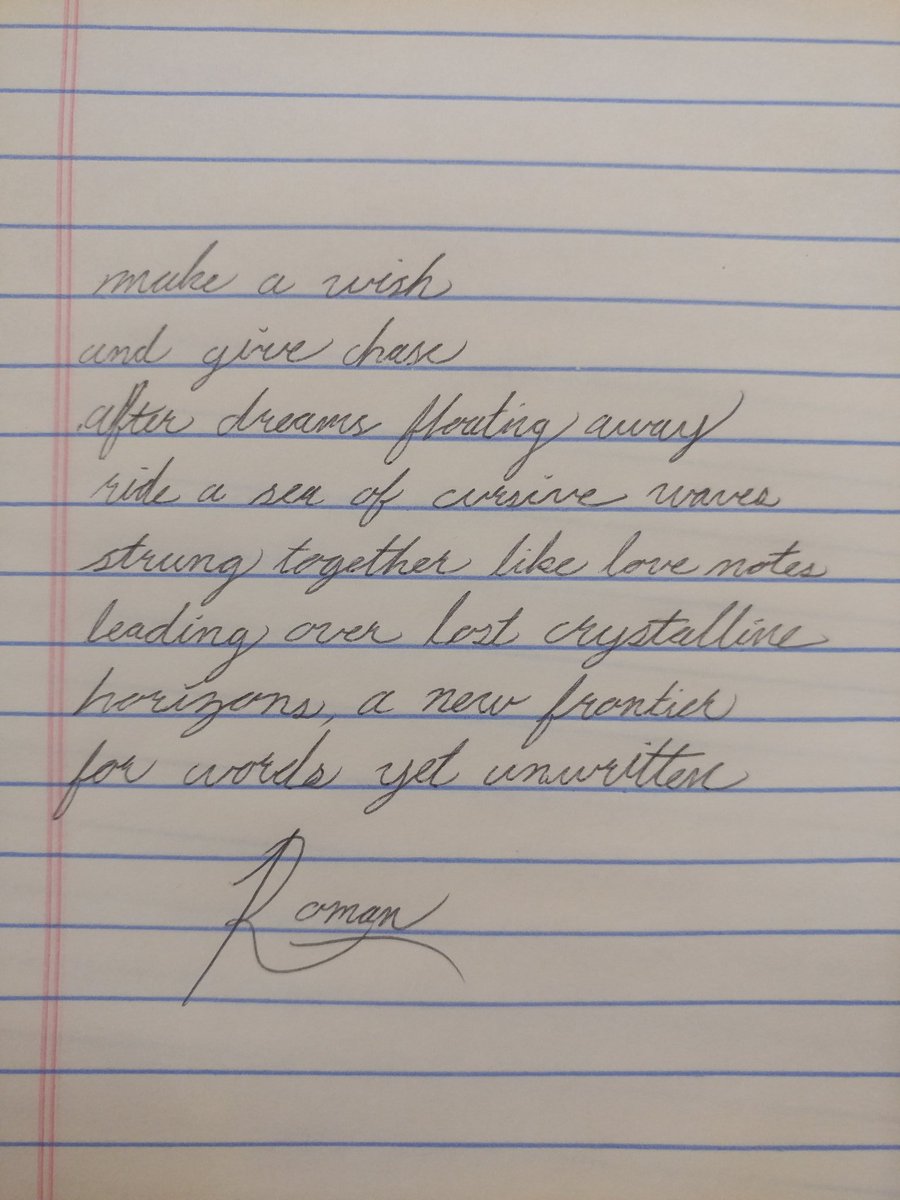 make a wish
and give chase
after dreams floating away
ride a sea of cursive waves
strung together like love notes
leading over lost crystalline
horizons, a new frontier
for words yet unwritten
Roman